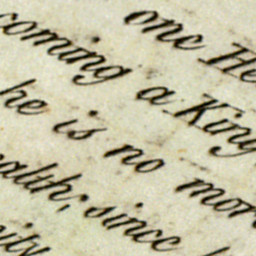 one He
coming a King
he is no mor
alth; since
ity